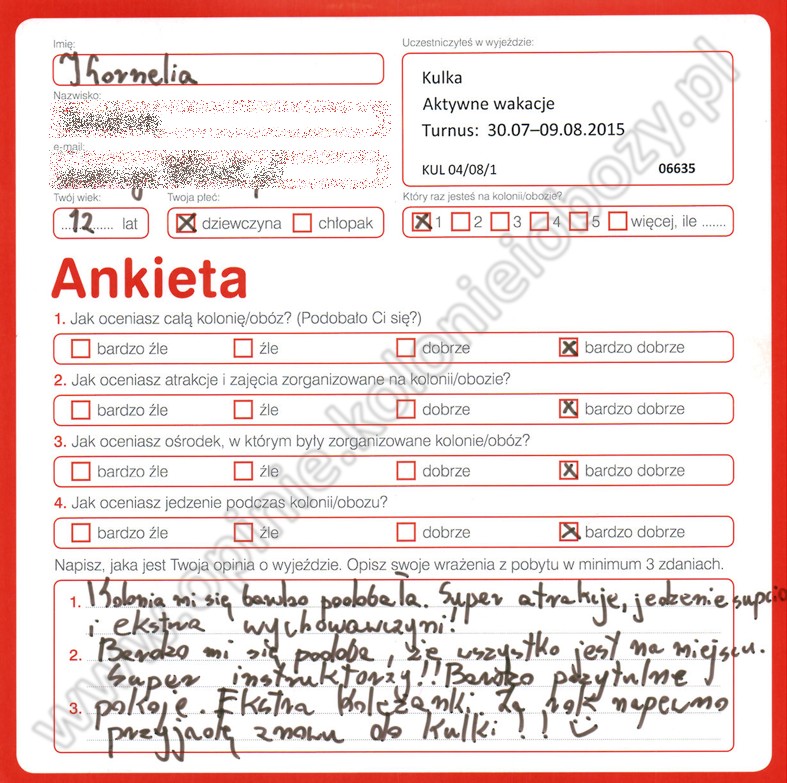 Imię:
Kornelia
Nazwisko:
e-mail:
Twój wiek:
12 lat
Twoja płeć:
dziewczyna chłopak
Uczestniczyłeś w wyjeździe:
Kulka
Aktywne wakacje
Turnus: 30.07–09.08.2015
KUL 04/08/1 06635
Który raz jesteś na kolonii/obozie?
1 2 3 4 5 więcej, ile .......
Ankieta
1. Jak oceniasz całą kolonię/obóz? (Podobało Ci się?)
bardzo źle źle dobrze bardzo dobrze
2. Jak oceniasz atrakcje i zajęcia zorganizowane na kolonii/obozie?
bardzo źle źle dobrze bardzo dobrze
3. Jak oceniasz ośrodek, w którym były zorganizowane kolonie/obóz?
bardzo źle źle dobrze bardzo dobrze
4. Jak oceniasz jedzenie podczas kolonii/obozu?
bardzo źle źle dobrze bardzo dobrze
Napisz, jaka jest Twoja opinia o wyjeździe. Opisz swoje wrażenia z pobytu w minimum 3 zdaniach.
1. Kolonia mi się bardzo podobała. Super atrakcje, jedzenie supcio
i ekstra wychowawczyni!
2. Bardzo mi się podoba, że wszystko jest na miejscu.
Super instruktorzy!! Bardzo przytulne
3. pokoje. Ekstra koleżanki. Za rok napewno
przyjadę znowu do Kulki!! 
www.opinie.kolonieiobozy.pl